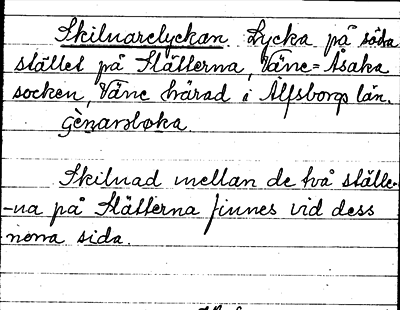 Skilnarelyckan. Lycka på södra
stället på Slätterna, Väne-Åsaka
socken, Väne härad i Älfsborgs län.
Genarsboka.
Skilnad mellan de två ställe-
-na på Slätterna finnes vid dess
norra sida.